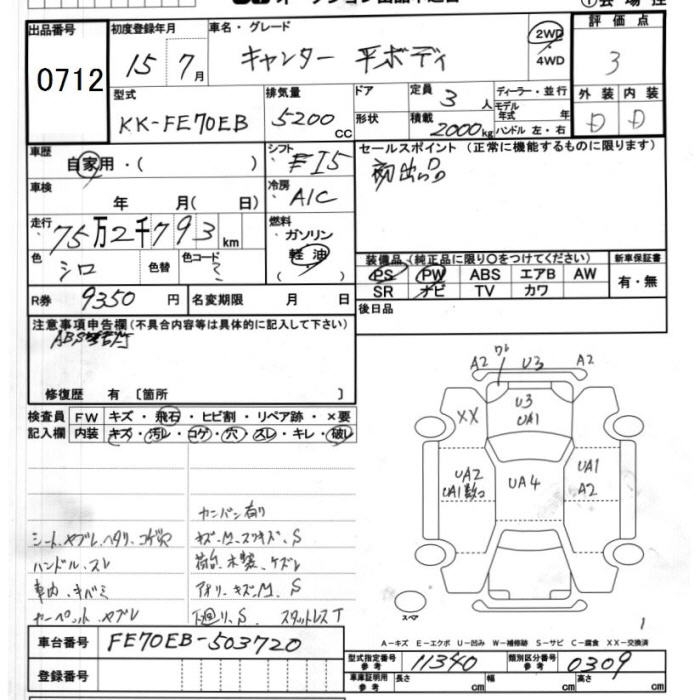 出品番号 0712
初度登録年月 15年 7月
車名・グレード キャンター 平ボディ
2WD・4WD
評価点 3
外装 D 内装 D
型式 KK-FE70EB
排気量 5200 cc
ドア 形状
定員 3 人
積載 2000kg
ディーラー・並行
モデル年式 年
ハンドル 左・右
車歴 自家用・( )
シフト F15
セールスポイント (正常に機能するものに限ります)
初出品
車検 年 月( 日)
冷房 A/C
走行 75万2千793km
燃料 ガソリン 軽油
色 シロ 色替 色コード
装備品 (純正品に限り○をつけてください) 新車保証書
PS PW ABS エアB AW 有・無
SR ナビ TV カワ
R券 9350 円 名変期限 月 日
後日品
注意事項申告欄 (不具合内容等は具体的に記入して下さい)
修復歴 有 〔箇所 〕
検査員記入欄
FW キズ・飛石・ヒビ割・リペア跡・×要
内装 キズ・汚レ・コゲ・穴・スレ・キレ・破レ
A2 ワレ U3 A2
XX U3 UA1
UA2 UA1数コ UA4 UA1 A2
カンバン有り
シート、ヤブレ、ヘタリ、コゲ穴
キズ、M、スリキズ、S
ハンドル、スレ
荷台、木製、ケズレ
車内、キバミ
アオリ、キズ、M、S
カーペット、ヤブレ
下廻り、S スタットレスT
スペア
1
A-キズ E-エクボ U-凹み W-補修跡 S-サビ C-腐食 XX-交換済
車台番号 FE70EB-503720
登録番号
型式指定番号 参考 11340 類別区分番号 参考 0309
車庫証明用 参考 長さ cm 幅 cm 高さ cm